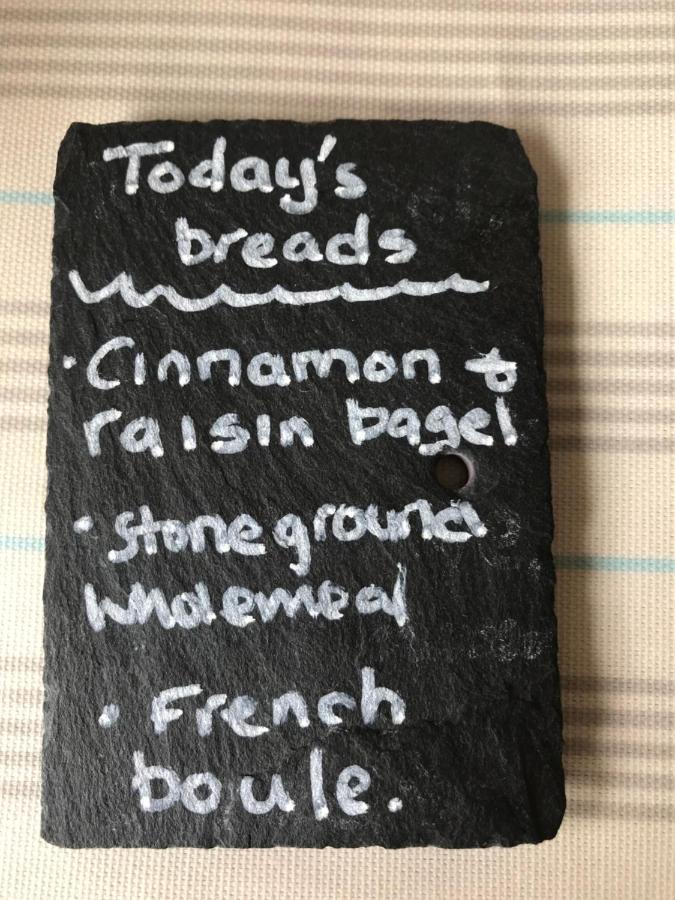 Today's
breads
· Cinnamon &
raisin bagel
· Stoneground
wholemeal
· French
boule.